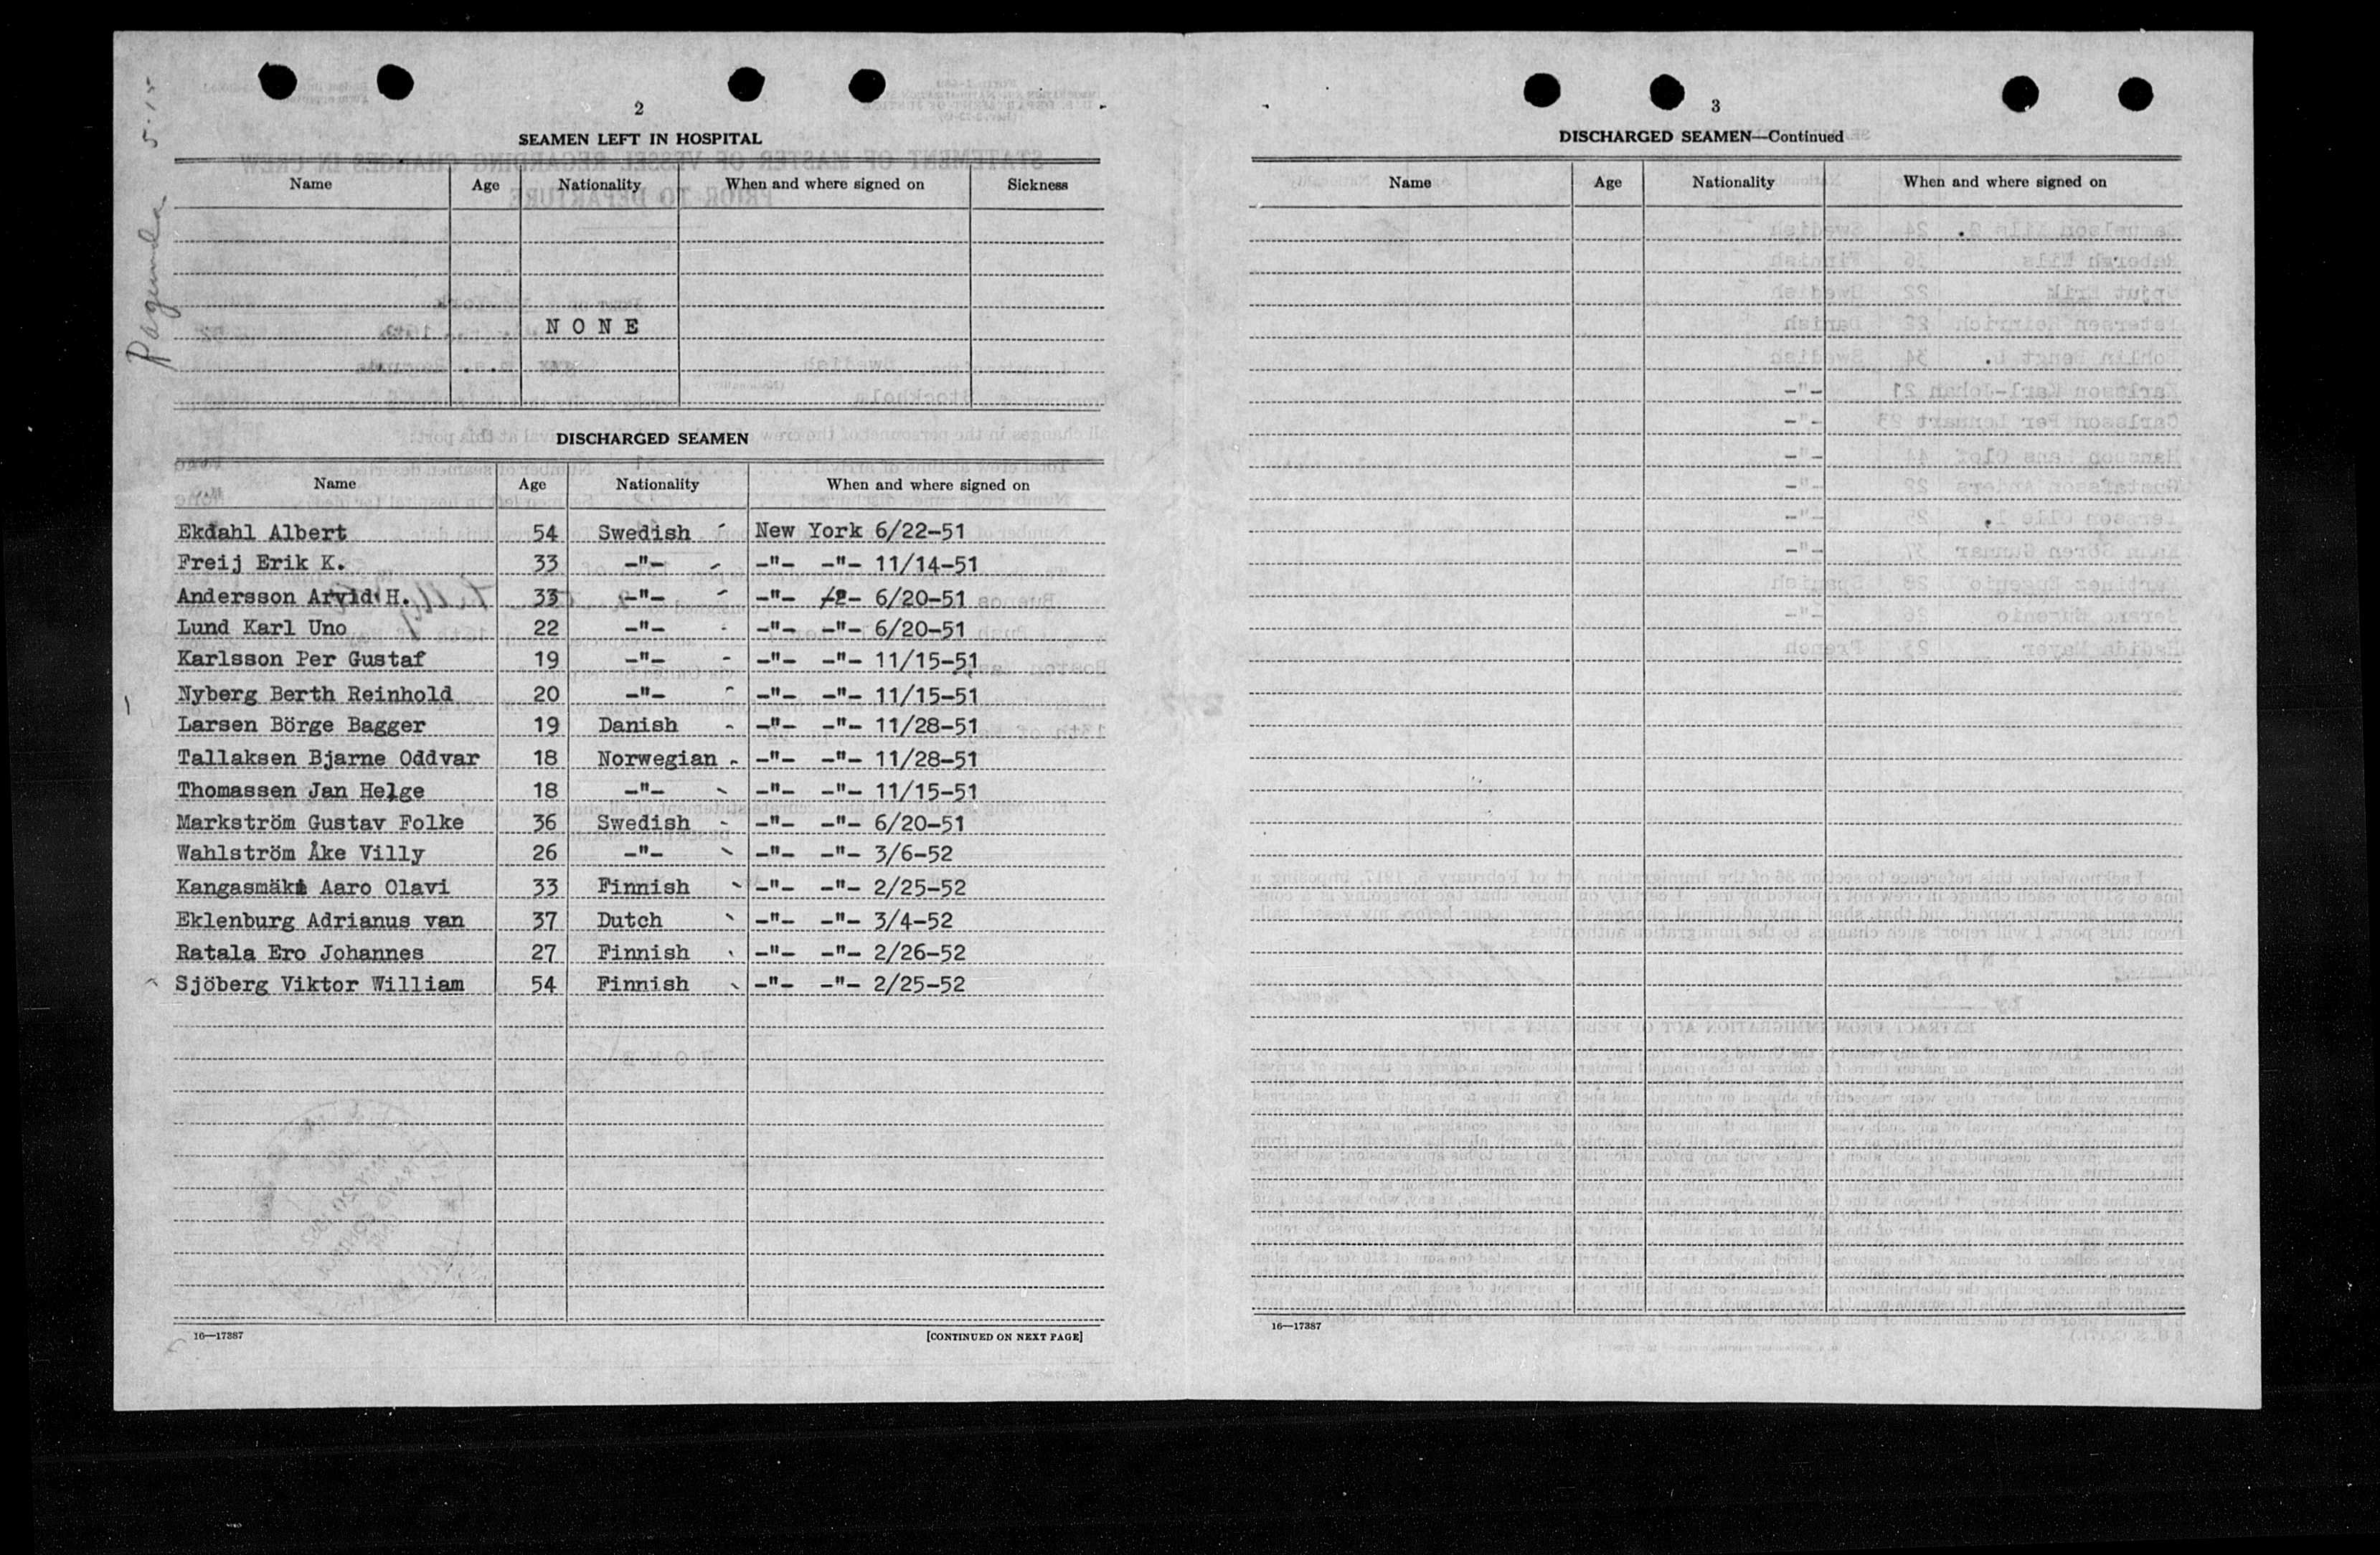 Ragunda 5-15
2
SEAMEN LEFT IN HOSPITAL
Name Age Nationality When and where signed on Sickness
NONE
DISCHARGED SEAMEN
Name Age Nationality When and where signed on
Ekdahl Albert 54 Swedish New York 6/22-51
Freij Erik K. 33 -"- -"- -"- 11/14-51
Andersson Arvid H. 33 -"- -"- -"- 6/20-51
Lund Karl Uno 22 -"- -"- -"- 6/20-51
Karlsson Per Gustaf 19 -"- -"- -"- 11/15-51
Nyberg Berth Reinhold 20 -"- -"- -"- 11/15-51
Larsen Börge Bagger 19 Danish -"- -"- 11/28-51
Tallaksen Bjarne Oddvar 18 Norwegian -"- -"- 11/28-51
Thomassen Jan Helge 18 -"- -"- -"- 11/15-51
Markström Gustav Folke 36 Swedish -"- -"- 6/20-51
Wahlström Åke Villy 26 -"- -"- -"- 3/6-52
Kangasmäki Aaro Olavi 33 Finnish -"- -"- 2/25-52
Eklenburg Adrianus van 37 Dutch -"- -"- 3/4-52
Ratala Ero Johannes 27 Finnish -"- -"- 2/26-52
Sjöberg Viktor William 54 Finnish -"- -"- 2/25-52
16—17387 [CONTINUED ON NEXT PAGE]
3
DISCHARGED SEAMEN—Continued
Name Age Nationality When and where signed on
16—17387